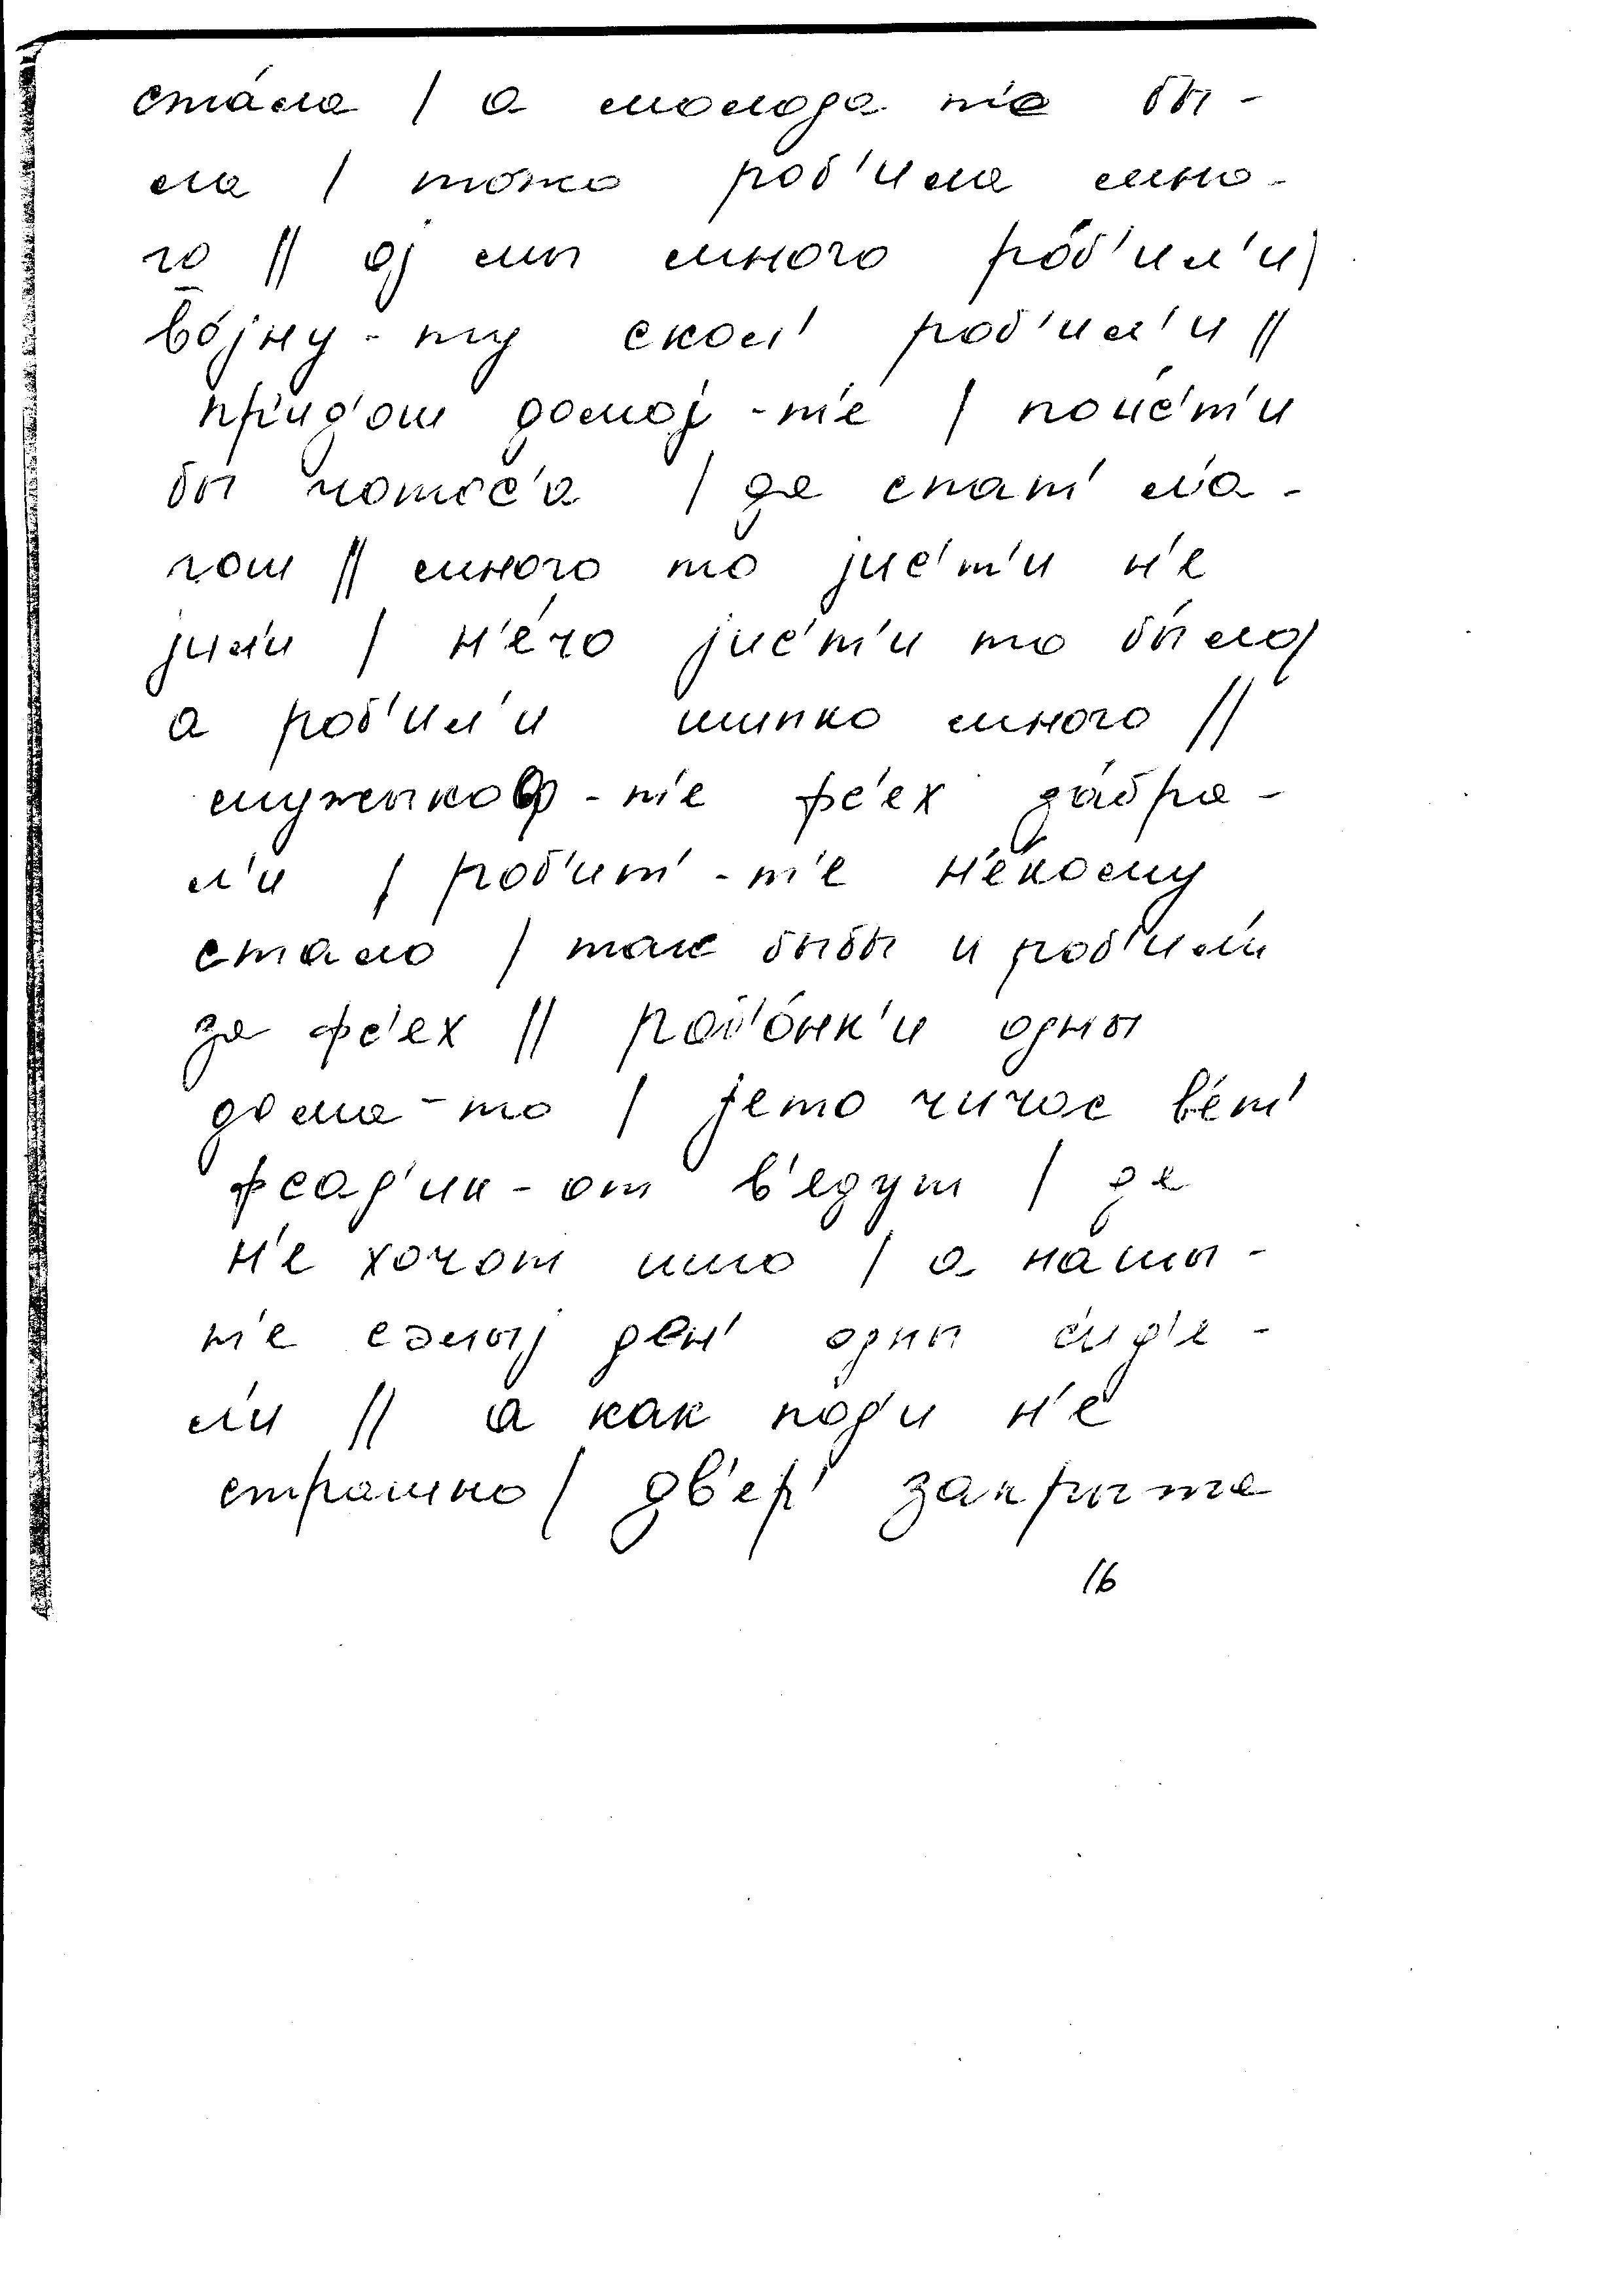 ста́ла / а молода т'е бы-
ла / то́жо роб'ила мно-
го // оj мы много ро́б'ил'и /
во́jну-ту скол' роб'ил'и //
пр'ид'ош домоj-т'е / поис'т'и
бы чотос'а / да спат' л'а-
гош // много то jис'т'и н'е
jил'и / н'е́чо jис'т'и то бы́ло /
а роб'ил'и шыпко много //
мужыкоф-т'е фс'ех за́бра-
л'и / роб'ит'-т'е н'е́кому
стало / так бабы и роб'ил'и
за фс'ех // роб'о́нк'и одны
дома-то / jето чичас в'ет'
фсад'ик-от в'едут / да
н'е хочот ишо / а на́шы-
т'е самыj ден' одны с'ид'е-
л'и // а как под'и н'е
страшно / дв'ер' закрыта
16